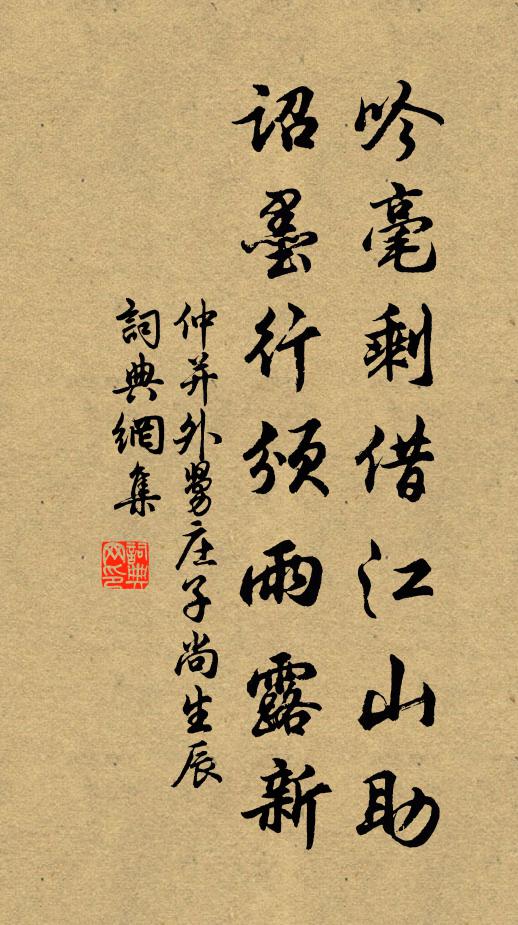 吟毫剩借江山助
詔墨行頒雨露新
仲并外舅庄子尚生辰
詞典網集
詞典网印